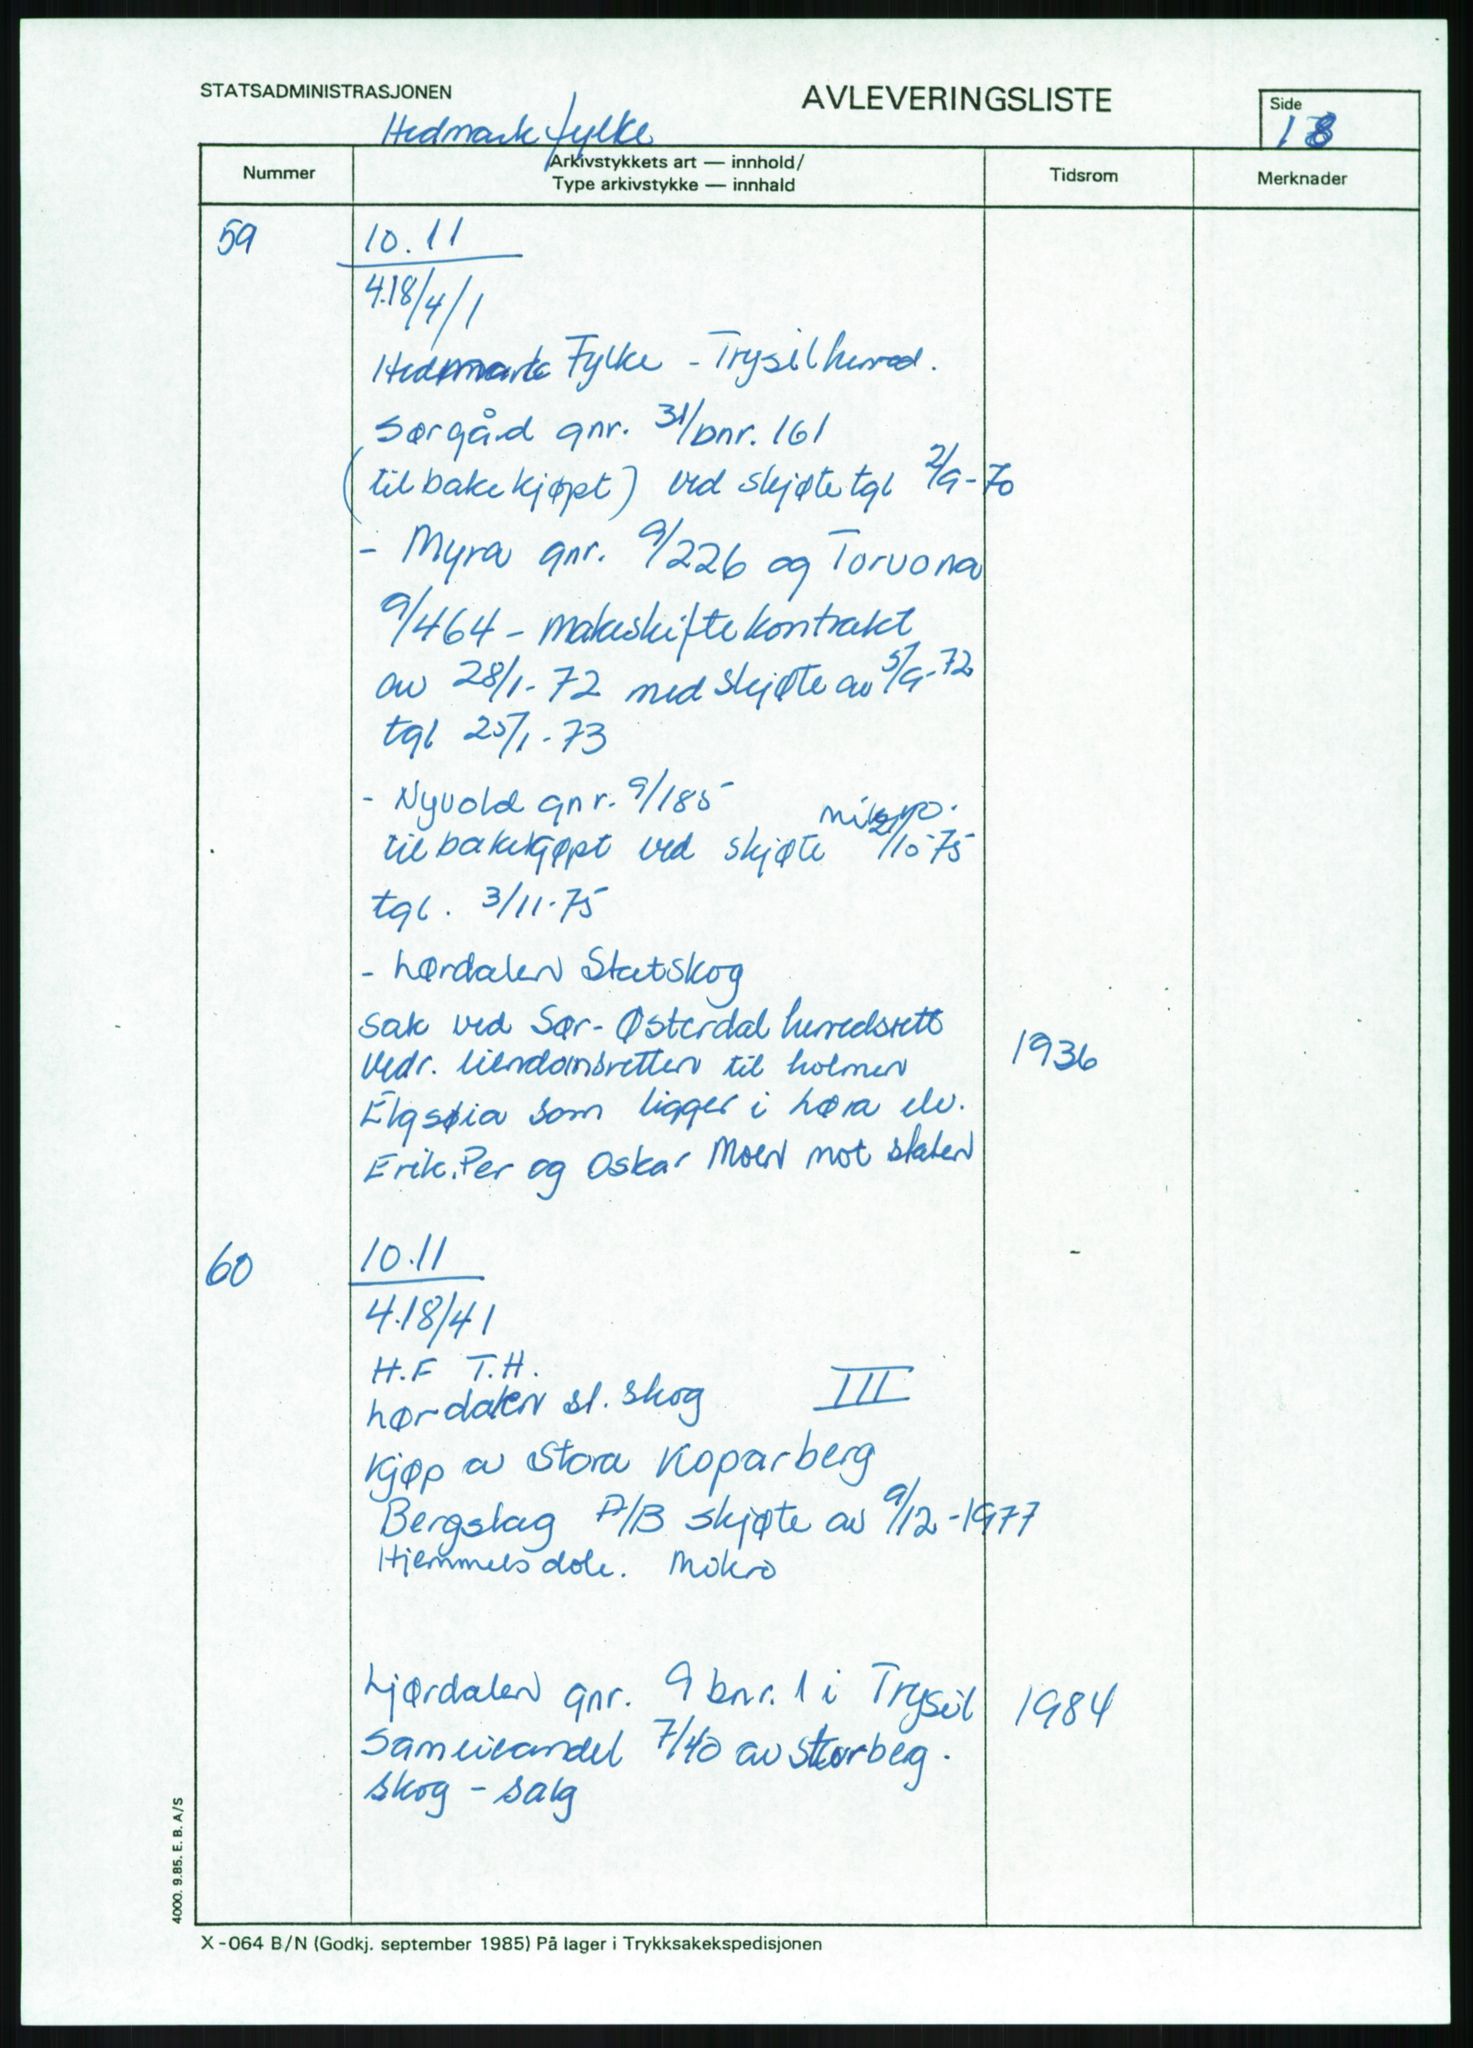 STATSADMINISTRASJONEN
AVLEVERINGSLISTE
Side
18
Hedmark fylke
Nummer
Arkivstykkets art — innhold/
Type arkivstykke — innhald
Tidsrom
Merknader
59
10.11
4.18/4/1
Hedmark Fylke - Trysil herred.
Sørgård gnr. 31/bnr. 161
(tilbakekjøpt) ved skjøte tgl 2/9-70
- Myra gnr. 9/226 og Torvona
9/464 - makeskiftekontrakt
av 28/1-72 med skjøte av 5/9-72
tgl 25/1-73
- Nyvold gnr. 9/185
mikro.
tilbakekjøpt ved skjøte 21/10-75
tgl. 3/11-75
- Lørdalen Statskog
Sak ved Sør-Østerdal herredsrett
vedr. eiendomsretten til holmen
1936
Elgsøia som ligger i Løra elv.
Erik, Per og Oskar Moen mot staten
60
10.11
4.18/41
H.F T.H.
Lørdalen st. skog III
Kjøp av Stora Koparberg
Bergslag A/B skjøte av 9/12-1977
Hjemmelsdok. Mikro
Ljørdalen gnr. 9 bnr. 1 i Trysil
1984
Sameieandel 7/40 av Storberg.
skog - salg
4000. 9.85. E. B. A/S
X-064 B/N (Godkj. september 1985) På lager i Trykksakekspedisjonen